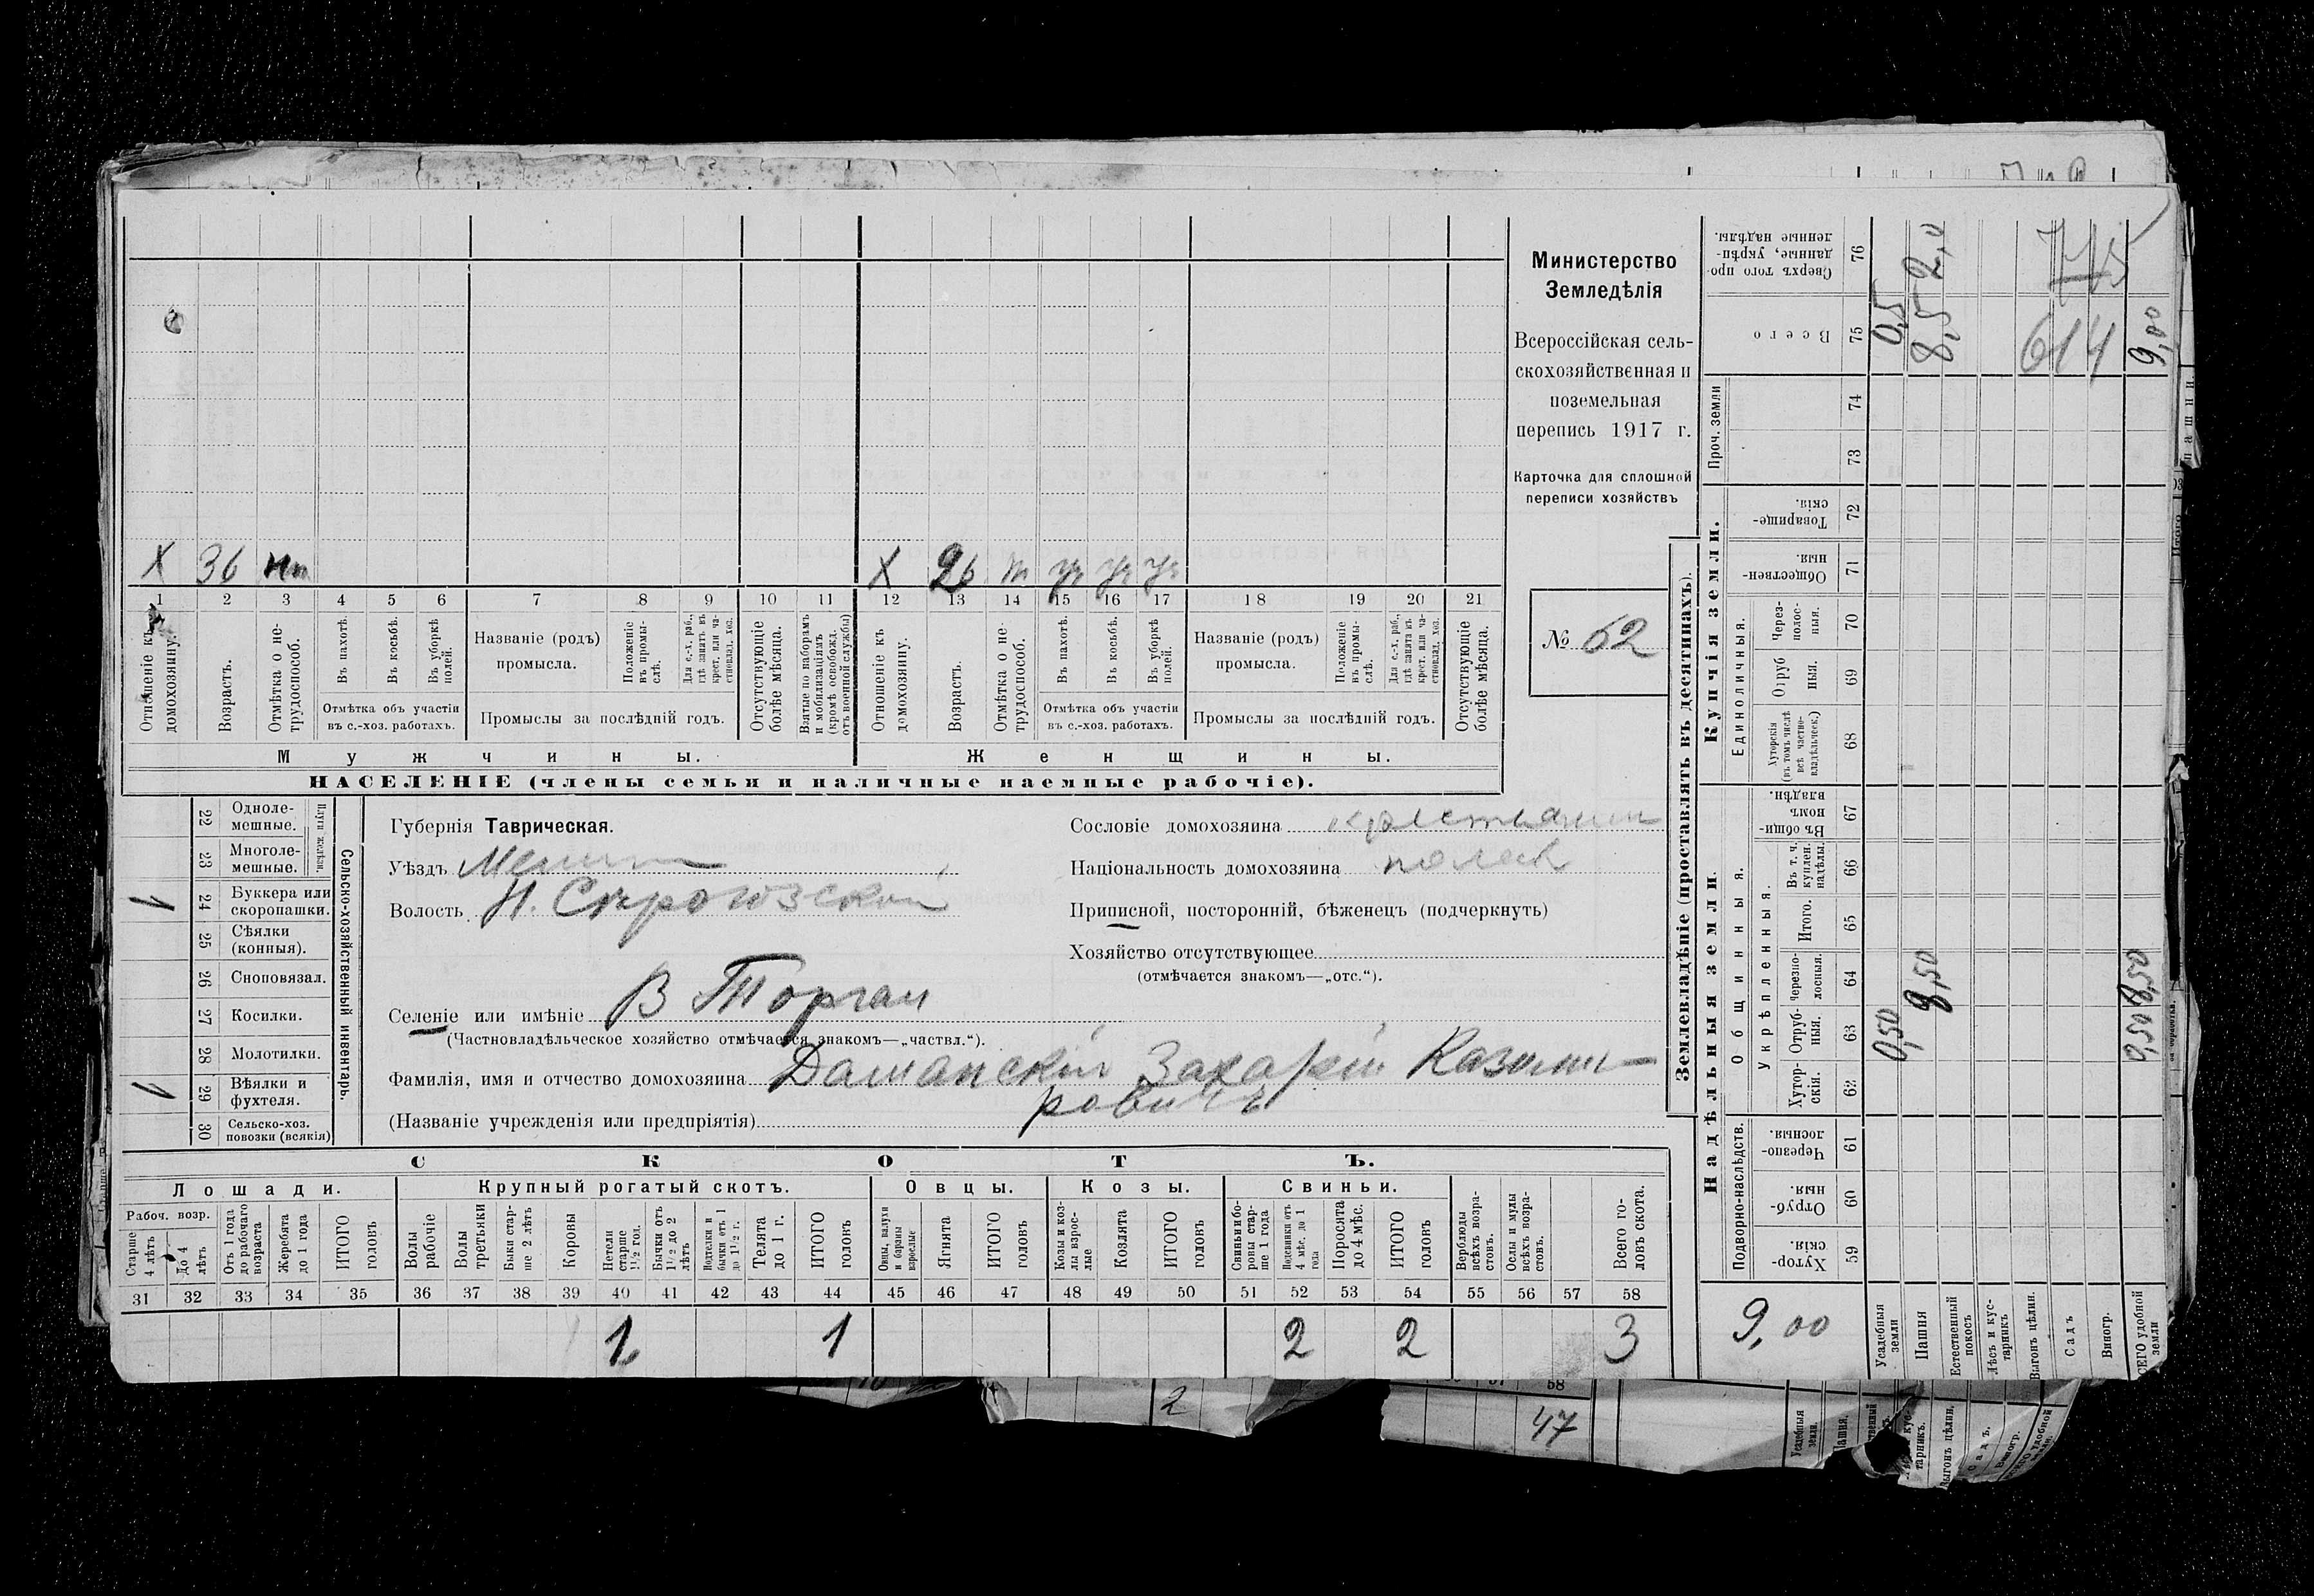 Министерство
Земледѣлія
Всероссійская сель-
скохозяйственная и
поземельная
перепись 1917 г.
Карточка для сплошной
переписи хозяйствъ
№ 62
X 36 X 26 т уч уч уч
1 2 3 4 5 6 7 8 9 10 11 12 13 14 15 16 17 18 19 20 21
Отношеніе къ домохозяину.
Возрастъ.
Отмѣтка о не-трудоспособ.
Въ пахотѣ.
Въ косьбѣ.
Въ уборкѣ полей.
Отмѣтка объ участіи
въ с.-хоз. работахъ.
Названіе (родъ)
промысла.
Положеніе въ промы-слѣ.
Для с.-х. раб., гдѣ занятъ въ крест. или ча-стновлад. хоз.
Промыслы за послѣдній годъ.
Отсутствующіе болѣе мѣсяца.
Взятые по наборамъ и мобилизаціямъ (кромѣ освобожд. отъ военной службы)
Отношеніе къ домохозяину.
Возрастъ.
Отмѣтка о не-трудоспособ.
Въ пахотѣ.
Въ косьбѣ.
Въ уборкѣ полей.
Отмѣтка объ участіи
въ с.-хоз. работахъ.
Названіе (родъ)
промысла.
Положеніе въ промы-слѣ.
Для с.-х. раб., гдѣ занята въ крест. или ча-стновлад. хоз.
Промыслы за послѣдній годъ.
Отсутствующіе болѣе мѣсяца.
Мужчины. Женщины.
НАСЕЛЕНІЕ (члены семьи и наличные наемные рабочіе).
22 Одноле-мешные.
23 Многоле-мешные.
Плуги желѣзн.
1 24 Буккера или скоропашки.
25 Сѣялки (конныя).
26 Сноповязал.
27 Косилки.
28 Молотилки.
1 29 Вѣялки и фухтеля.
30 Сельско-хоз. повозки (всякія)
Сельско-хозяйственный инвентарь.
Губернія Таврическая.
Уѣздъ Мелит
Волость Н. Сѣрогозской
Селеніе или имѣніе В Торгаи
(Частновладѣльческое хозяйство отмѣчается знакомъ—„частвл.“).
Фамилія, имя и отчество домохозяина Дашанскій Захарій Казими-
ровичъ
(Названіе учрежденія или предпріятія)
Сословіе домохозяина крестьянин
Національность домохозяина поляк
Приписной, посторонній, бѣженецъ (подчеркнуть)
Хозяйство отсутствующее
(отмѣчается знакомъ—„отс.“).
СКОТЪ.
Лошади. Крупный рогатый скотъ. Овцы. Козы. Свиньи.
Рабоч. возр.
Старше 4 лѣтъ
До 4 лѣтъ
Отъ 1 года до рабочаго возраста
Жеребята до 1 года
ИТОГО головъ
Волы рабочіе
Волы третьяки
Быки стар-ше 2 лѣтъ
Коровы
Нетели старше 1½ год.
Бычки отъ 1½ до 2 лѣтъ
Подтелки и бычки отъ 1 до 1½ г.
Телята до 1 г.
ИТОГО головъ
Овцы, валухи и бараны взрослые
Ягнята
ИТОГО головъ
Козы и коз-лы взрос-лые
Козлята
ИТОГО головъ
Свиньи и бо-ровы стар-ше 1 года
Подсвинки отъ 4 мѣс. до 1 года
Поросята до 4 мѣс.
ИТОГО головъ
Верблюды всѣхъ возра-стовъ.
Ослы и мулы всѣхъ возра-стовъ.
Всего го-ловъ скота.
31 32 33 34 35 36 37 38 39 40 41 42 43 44 45 46 47 48 49 50 51 52 53 54 55 56 57 58
1 1 2 2 3
Землевладѣніе (проставлять въ десятинахъ).
Надѣльныя земли.
Подворно-наслѣдств.
Хутор-скія. 59
Отруб-ныя. 60
Черезпо-лосныя. 61
Общинныя.
Укрѣпленныя.
Хутор-скія. 62
Отруб-ныя. 63
Черезпо-лосныя. 64
Итого. 65
Въ т. ч. куплен. надѣлы. 66
Въ общин-номъ владѣн. 67
Купчія земли.
Единоличныя.
Хуторскія (въ томъ числѣ всѣ частно-владѣльческ.) 68
Отруб ныя. 69
Через-полос-ныя. 70
Обществен-ныя. 71
Товарище-скія. 72
Проч. земли
73 74
Всего 75
Сверхъ того про-данные, укрѣп-ленные надѣлы. 76
9,00
Усадебныя земли 0,50 0,5
Пашня 8,50 8,5 2,0
Естественный покосъ
Лѣсъ и кус-тарникъ
Выгонъ цѣлин.
Садъ
Виногр.
СЕГО удобной земли 0,50 8,50 9,00
614
2
58
47
Усадебныя земли.
Пашня.
тарникъ.
Выгонъ цѣлин.
Садъ.
Виногр.